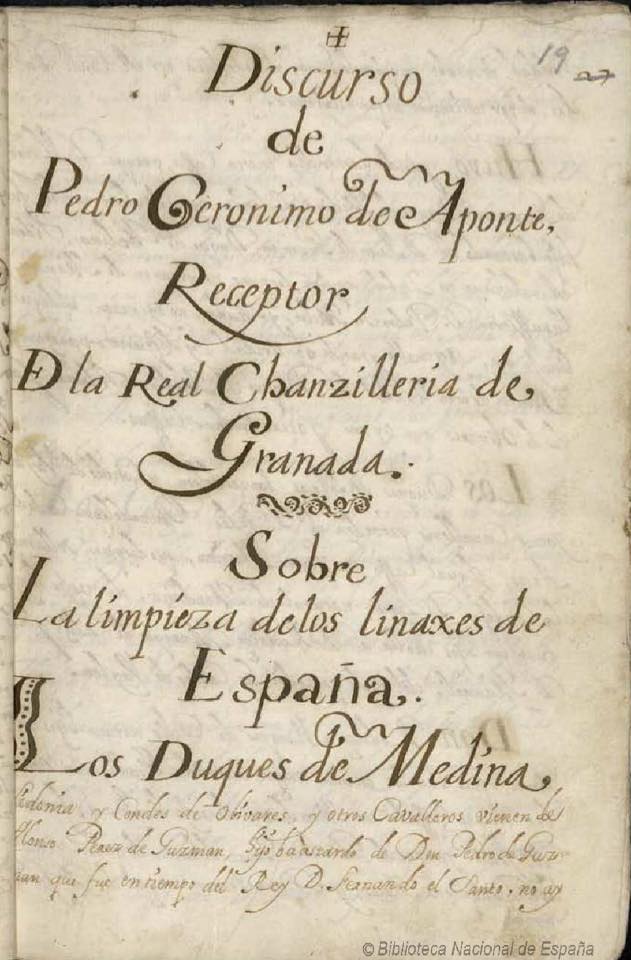 19
27
Discurso
de
Pedro Geronimo de Aponte,
Receptor
D la Real Chanzilleria de
Granada.
Sobre
La limpieza delos linaxes de
España.
Los Duques de Medina
Sidonia, y Condes de Olivares, y otros Cavalleros vienen de
Alonso Perez de Guzman, hijo bastardo de Don Pedro de Guz-
man que fue en tiempo del Rey D. Fernando el Santo, no ay
© Biblioteca Nacional de España